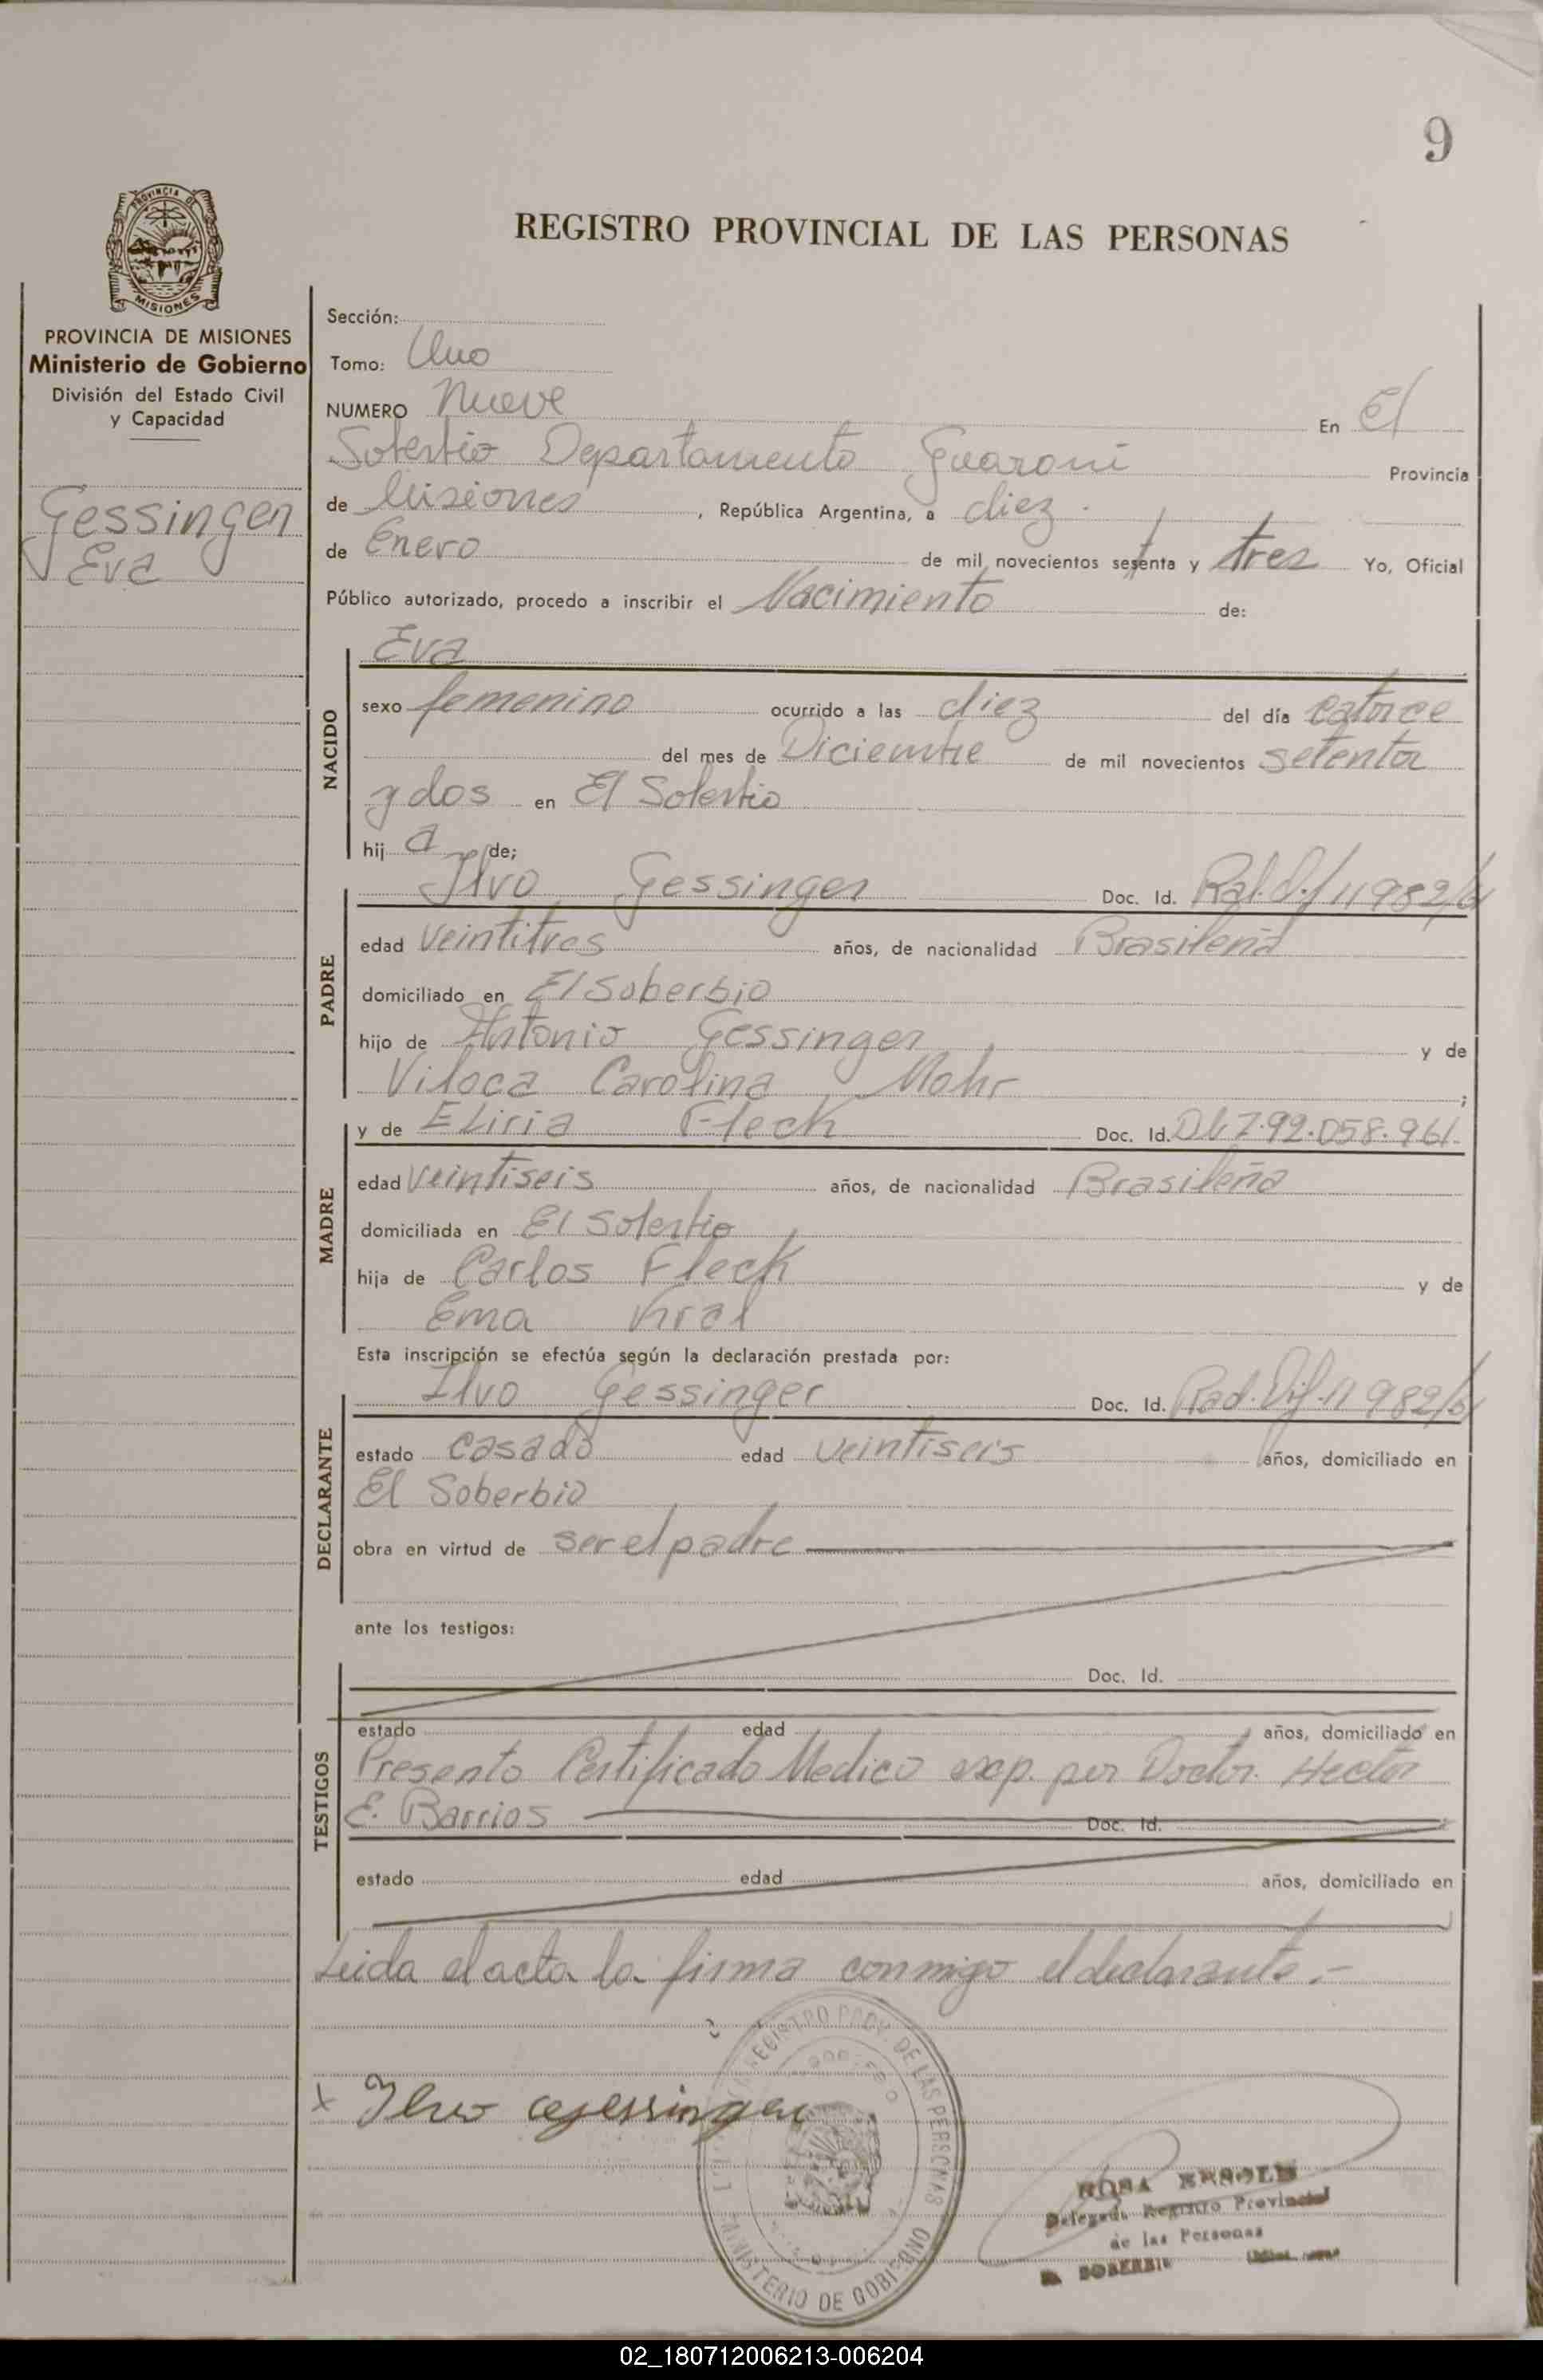 9
REGISTRO PROVINCIAL DE LAS PERSONAS
PROVINCIA DE MISIONES
PROVINCIA DE MISIONES
Ministerio de Gobierno
División del Estado Civil
y Capacidad
Gessinger
Eva
Sección:
Tomo: Uno
NUMERO Nueve En El
Soberbio Departamento Guaraní Provincia
de Misiones, República Argentina, a diez
de Enero de mil novecientos setenta y tres Yo, Oficial
Público autorizado, procedo a inscribir el Nacimiento de:
NACIDO
Eva
sexo femenino ocurrido a las diez del día catorce
del mes de Diciembre de mil novecientos setenta
y dos en El Soberbio
hij a de;
PADRE
Ilvo Gessinger Doc. Id. 11982/61
edad veintitres años, de nacionalidad Brasileña
domiciliado en El Soberbio
hijo de Antonio Gessinger y de
Viloca Carolina Mohr ;
MADRE
y de Eliria Fleck Doc. Id. 92.058.961
edad veintiseis años, de nacionalidad Brasileña
domiciliada en El Soberbio
hija de Carlos Fleck y de
Ema Kral
Esta inscripción se efectúa según la declaración prestada por:
DECLARANTE
Ilvo Gessinger Doc. Id. Rad. Dif. 11982/61
estado casado edad veintiseis años, domiciliado en
El Soberbio
obra en virtud de ser el padre
ante los testigos:
TESTIGOS
Doc. Id.
estado edad años, domiciliado en
Presento Certificado Medico exp. por Doctor Hector
E. Barrios Doc. Id.
estado edad años, domiciliado en
Leida el acta la firma conmigo el declarante.-
x Ilvo Gessinger
REGISTRO PROV. DE LAS PERSONAS
MINISTERIO DE GOBIERNO
ROSA
Delegada Registro Provincial
de las Personas
EL SOBERBIO
02_180712006213-006204